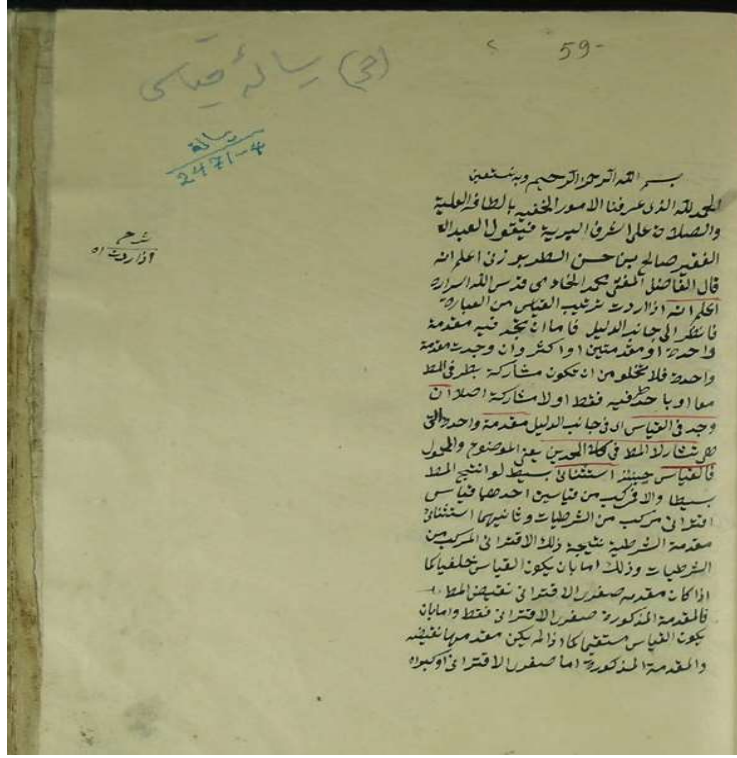 59-
(ى) رسالۀ قياسى
رسالة
2471-4
شرح
اذا ردت اه
بسم الله الرحمن الرحيم وبه نستعين
الحمد لله الذى عرفنا الامور الخفيه بالطافه العلية
والصلاة على اشرف البرية فيقول العبد الى
الفقير صالح بن حسن اعلم انه
قال الفاضل المفتى محمد الخادمى قدس الله اسراره
اعلم انه اذا ردت ترتيب القياس من العبارة
فانظر الى جانب الدليل فاما ان تجد فيه مقدمة
واحدة او مقدمتين او اكثر وان وجدت مقدمة
واحدة فلا تخلو من ان تكون مشاركة بطرفى المط
معا او باحد طرفيه فقط او لا مشاركة اصلا ان
وجد فى القياس اى فى جانب الدليل مقدمة واحدة التى
تشارك المط فى كلا الحدين يعنى الموضوع والمحمول
فالقياس حينئذ استثنائى بسيط لو انتج المط
بسيطا والا فركب من قياسين احدهما قياس
اقترانى مركب من الشرطيات وثانيهما استثنائى
مقدمة الشرطية نتيجة ذلك الاقترانى المركب من
الشرطيات وذلك اما بان يكون القياس خلفيا كما
اذا كان مقدمه صغرى الاقترانى نقيض المط
فالمقدمة المذكورة صغرى الاقترانى فقط واما بان
يكون القياس مستقيما كما اذا لم يكن مقدمها نقيضه
والمقدمة المذكورة اما صغرى الاقترانى او كبراه